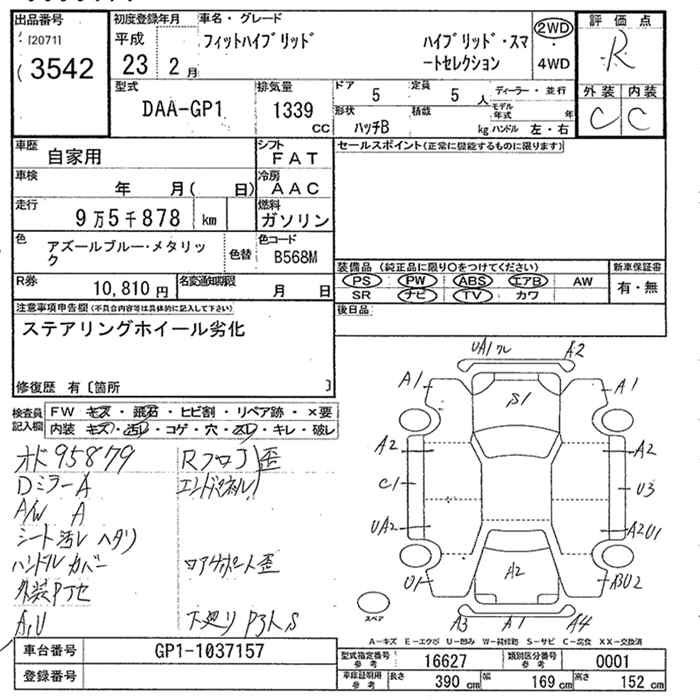 出品番号
(20711
3542
初度登録年月
平成
23 2月
車名・グレード
フィットハイブリッド ハイブリッド・スマ
ートセレクション
2WD
・
4WD
評価点
R
外装 内装
C C
型式
DAA-GP1
排気量
1339
CC
ドア 5
定員 5 人
形状 ハッチB
積載 kg
ディーラー・並行
モデル年式 年
ハンドル 左・右
車歴 自家用
シフト FAT
車検 年 月( 日)
冷房 AAC
走行 9万5千878 km
燃料 ガソリン
色 アズールブルー・メタリッ
ク
色替
色コード B568M
R券 10,810円
名変通知期限 月 日
セールスポイント(正常に機能するものに限ります)
装備品 (純正品に限り○をつけてください)
PS PW ABS エアB AW
SR ナビ TV カワ
新車保証書
有・無
後日品
注意事項申告欄(不具合内容等は具体的に記入して下さい)
ステアリングホイール劣化
修復歴 有〔箇所 〕
検査員
記入欄
FW キズ・飛石・ヒビ割・リペア跡・×要
内装 キズ・汚レ・コゲ・穴・スレ・キレ・破レ
オド95879
Dミラー A
A/W A
シート汚レ ヘタリ
ハンドルカバー
A,U
エンドパネルU
下廻り
UA1 ワレ A2
A1 S1 A1
A2 A2
C1 U3
UA2 A2U1
U1 A2
A3 A1 A4
スペア
A-キズ E-エクボ U-凹み W-補修跡 S-サビ C-腐食 XX-交換済
車台番号 GP1-1037157
登録番号
型式指定番号
参考
16627
類別区分番号
参考
0001
車庫証明用
参考
長さ 390 cm 幅 169 cm 高さ 152 cm